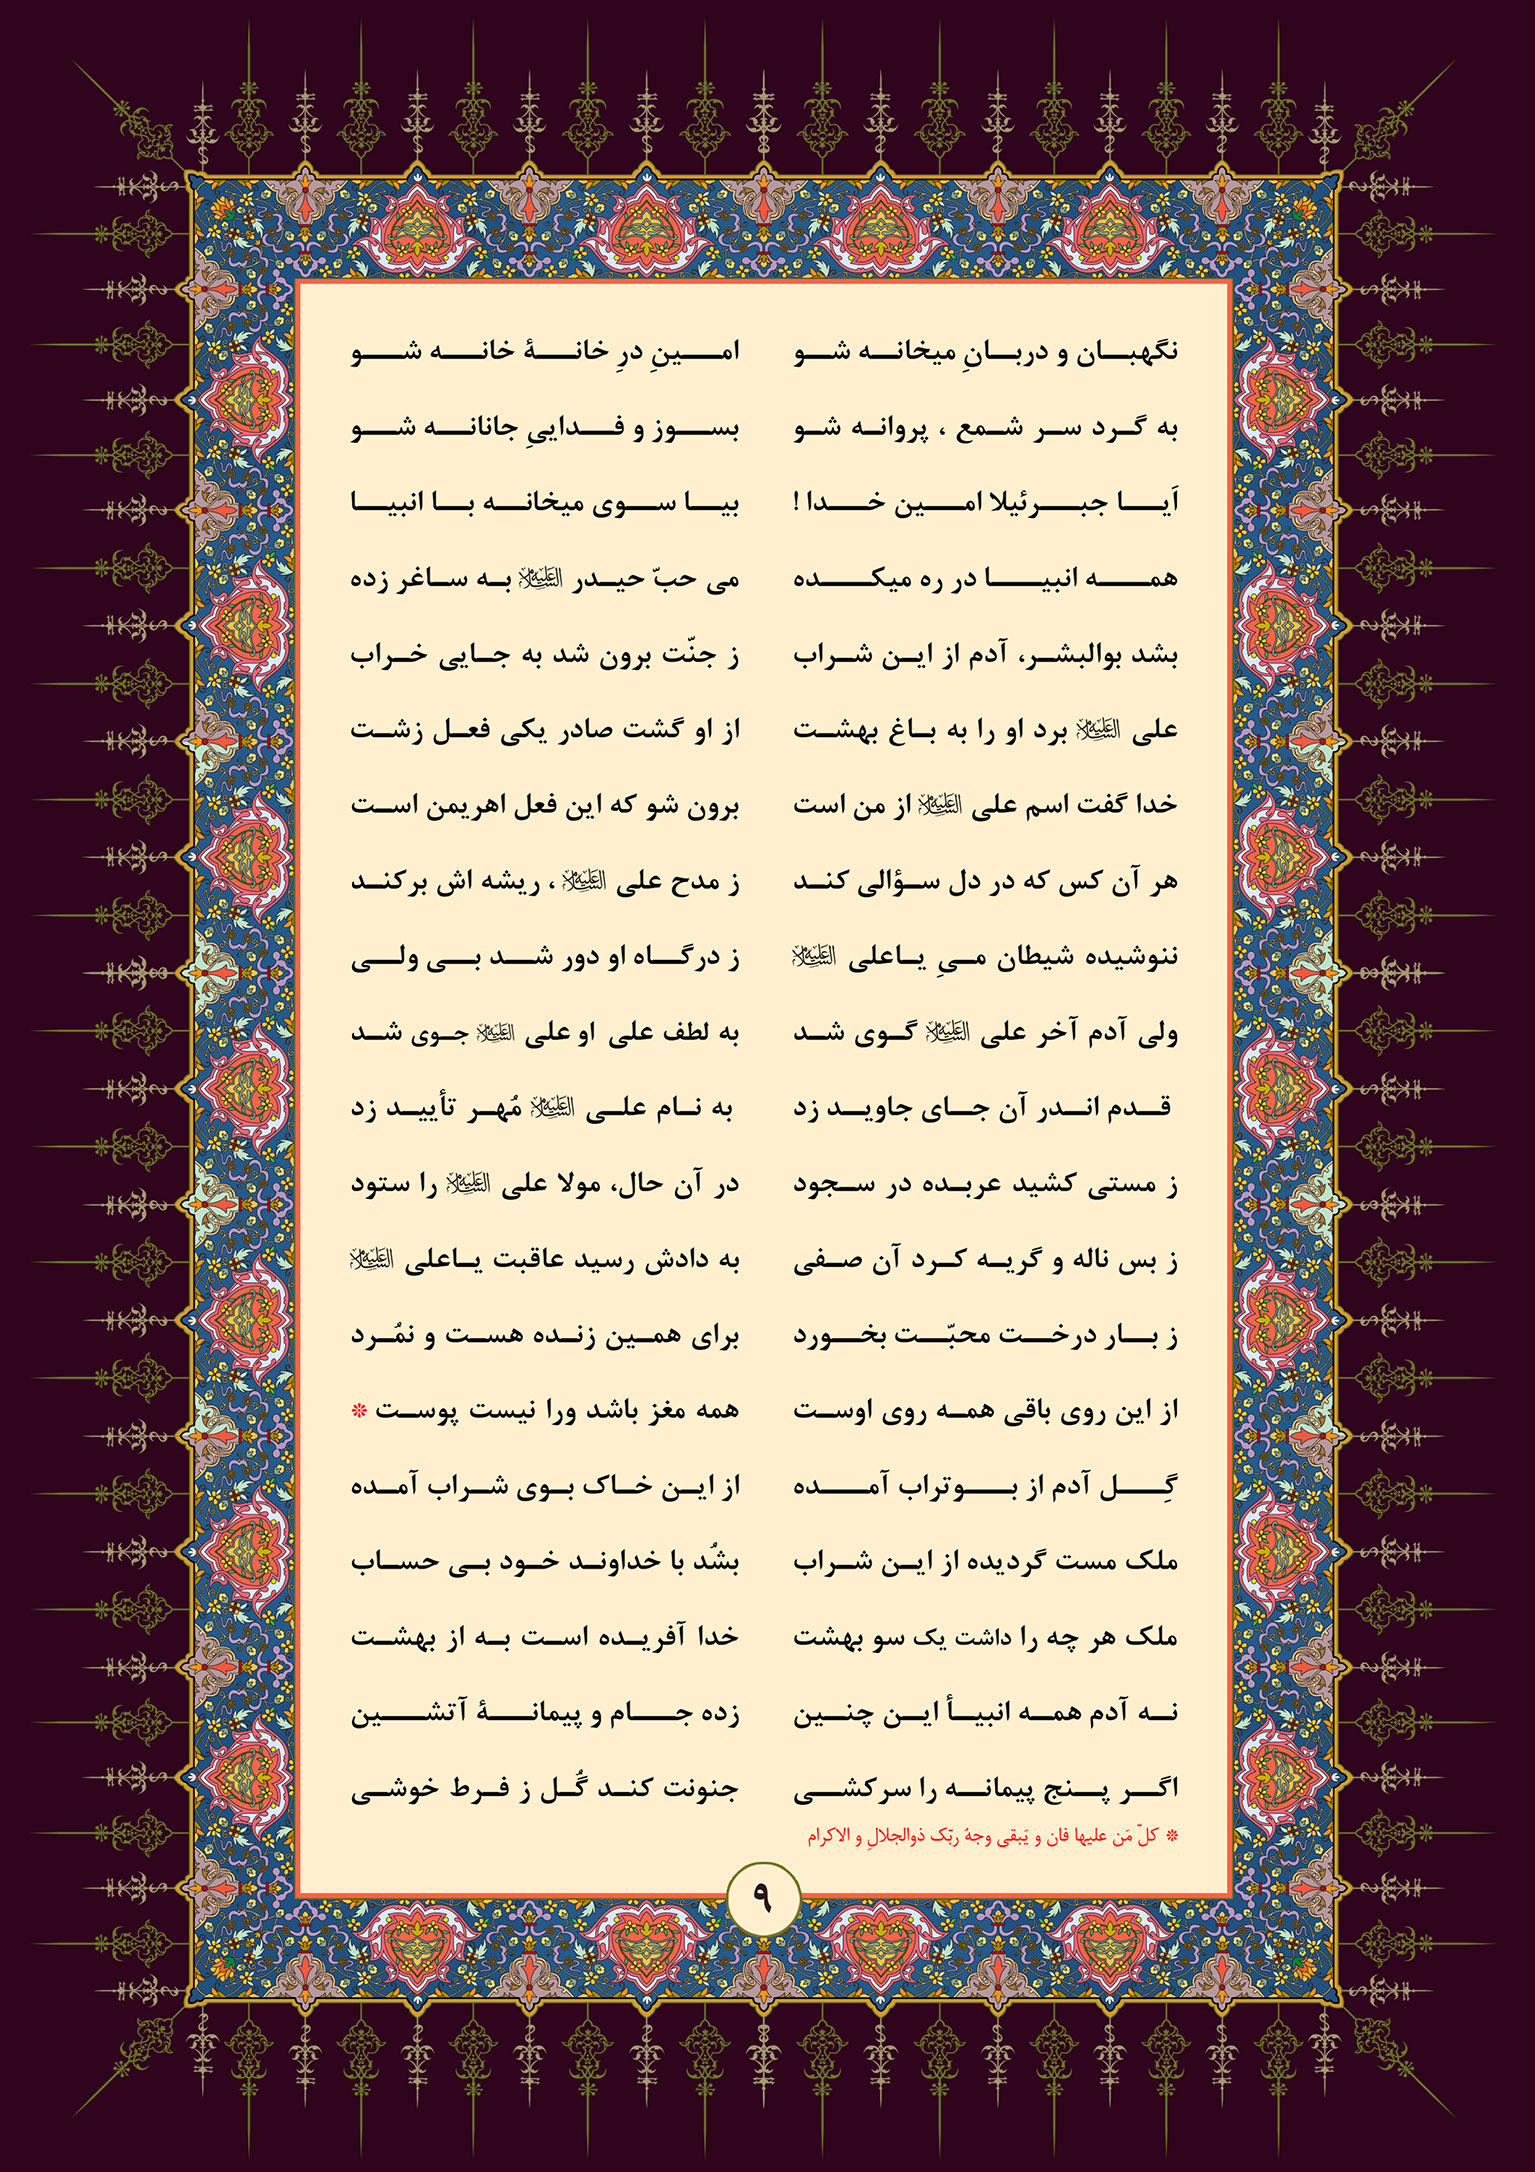 نگهبان و دربانِ میخانه شو امینِ درِ خانهٔ خانه شو
به گرد سر شمع ، پروانه شو بسوز و فداییِ جانانه شو
اَیا جبرئیلا امین خدا ! بیا سوی میخانه با انبیا
همه انبیا در ره میکده می حبّ حیدر علیه‌السلام به ساغر زده
بشد بوالبشر، آدم از این شراب ز جنّت برون شد به جایی خراب
علی علیه‌السلام برد او را به باغ بهشت از او گشت صادر یکی فعل زشت
خدا گفت اسم علی علیه‌السلام از من است برون شو که این فعل اهریمن است
هر آن کس که در دل سؤالی کند ز مدح علی علیه‌السلام ، ریشه اش برکند
ننوشیده شیطان میِ یاعلی علیه‌السلام ز درگاه او دور شد بی ولی
ولی آدم آخر علی علیه‌السلام گوی شد به لطف علی او علی علیه‌السلام جوی شد
قدم اندر آن جای جاوید زد به نام علی علیه‌السلام مُهر تأیید زد
ز مستی کشید عربده در سجود در آن حال، مولا علی علیه‌السلام را ستود
ز بس ناله و گریه کرد آن صفی به دادش رسید عاقبت یاعلی علیه‌السلام
ز بار درخت محبّت بخورد برای همین زنده هست و نمُرد
از این روی باقی همه روی اوست همه مغز باشد ورا نیست پوست *
گِل آدم از بوتراب آمده از این خاک بوی شراب آمده
ملک مست گردیده از این شراب بشُد با خداوند خود بی حساب
ملک هر چه را داشت یک سو بهشت خدا آفریده است به از بهشت
نه آدم همه انبیأ این چنین زده جام و پیمانهٔ آتشین
اگر پنج پیمانه را سرکشی جنونت کند گُل ز فرط خوشی
* کلّ مَن علیها فان و یَبقی وجهُ ربّک ذوالجلالِ و الاکرام
۹